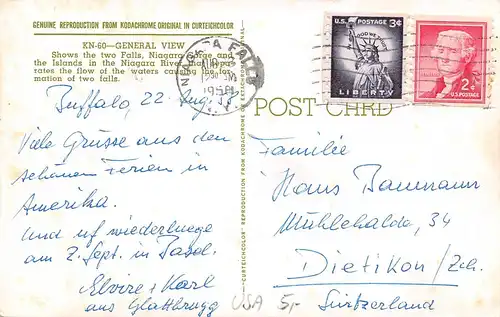 GENUINE REPRODUCTION FROM KODACHROME ORIGINAL IN CURTEICHCOLOR
KN-60—GENERAL VIEW
Shows the two Falls, Niagara Gorge and
the Islands in the Niagara River that sepa-
rates the flow of the waters causing the for-
mation of two falls.
NIAGARA FALLS
U.S. POSTAGE 3¢
IN GOD WE TRUST
LIBERTY
2¢
U.S. POSTAGE
POST CARD
CURTEICHCOLOR® REPRODUCTION FROM KODACHROME OR EKTACHROME ORIGINAL
Buffalo, 22. Aug.
Viele Grüsse aus den
schönen Ferien in
Amerika.
Und uf wiederluege
am 2. Sept. in Basel.
Elvire + Karl
aus Glattbrugg
USA 5,-
Familie
Hans Baumann
Mühlehalde, 34
Dietikon/Zch.
Switzerland